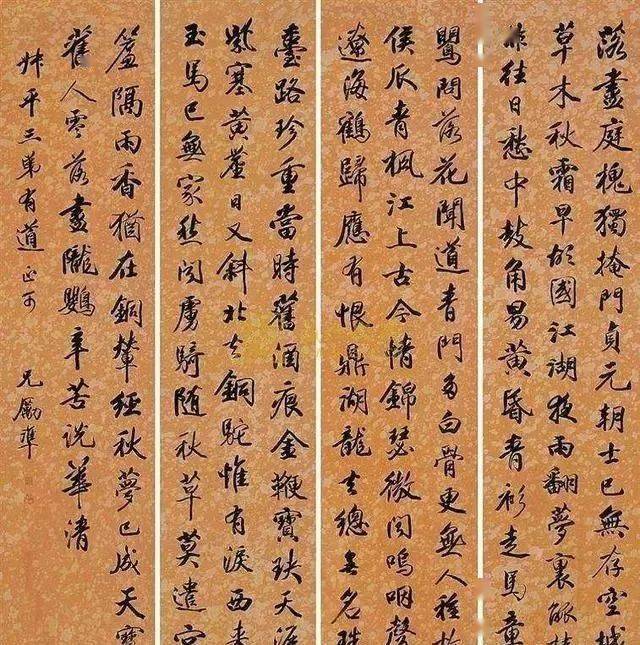 落盡庭槐獨掩門貞元朝士已無存空城
草木秋霜早故國江湖夜雨翻夢裏觚
非往日愁中鼓角易黃昏青衫走馬童
鸎問落花聞道青門多白骨更無人種故
侯瓜青楓江上古今情錦瑟微聞嗚咽聲
遼海鶴歸應有恨鼎湖龍去總無名珠
臺路珍重當時舊酒痕金鞭寶玦天涯
紫塞黃蘆日又斜北去銅駝惟有淚西來
玉馬已無家愁聞虜騎隨秋草莫遣宮
簾隔雨香猶在銅輦經秋夢已成天寶
舊人零落盡隴鸚辛苦說華清
叔平三弟有道正可
兄勵準